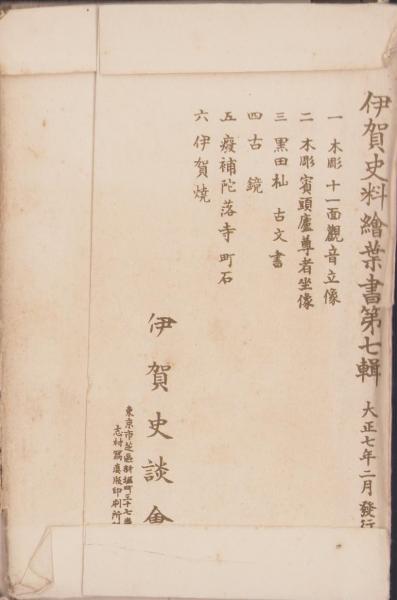 伊賀史料繪葉書第七輯 大正七年二月發行
一 木彫 十一面觀音立像
二 木彫 賓頭盧尊者坐像
三 黒田杣 古文書
四 古鏡
五 癈補陀落寺 町石
六 伊賀焼
伊賀史談會
東京市芝區新堀町三十七番
志村寫眞版印刷所